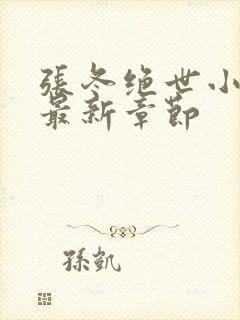 張冬绝世小
最新章節
孫凱